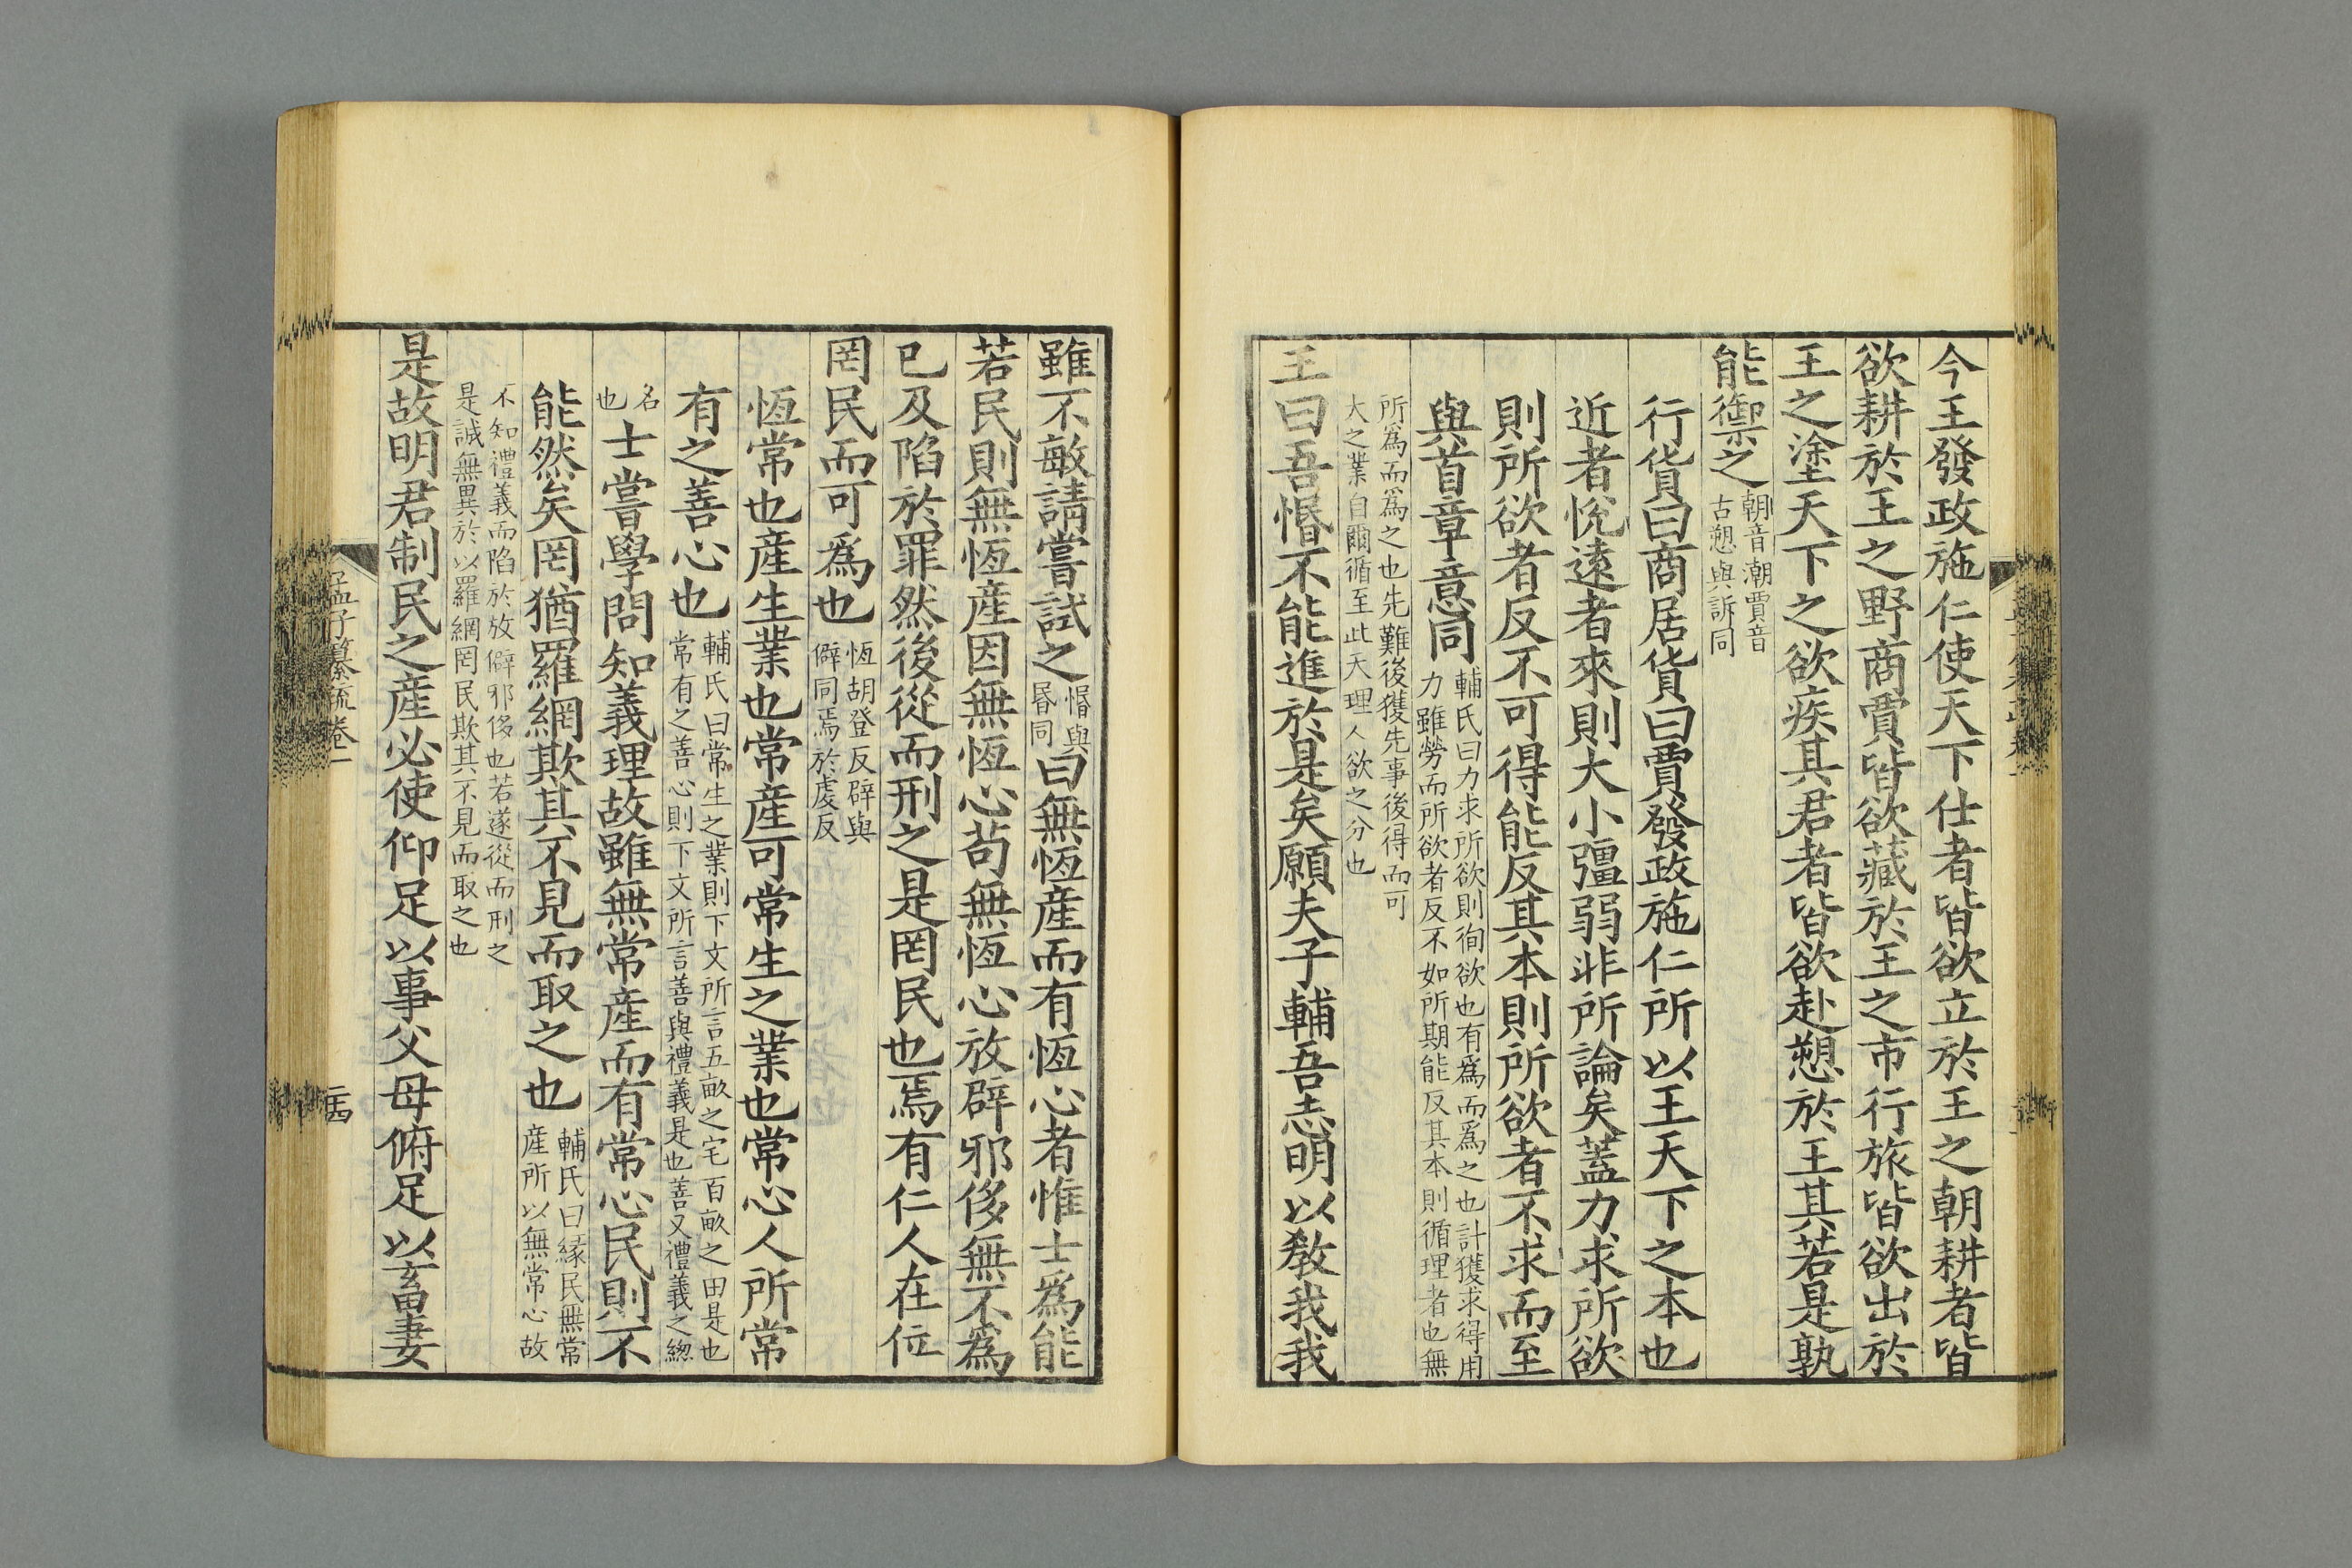 今王發政施仁使天下仕者皆欲立於王之朝耕者皆
欲耕於王之野商賈皆欲藏於王之市行旅皆欲出於
王之塗天下之欲疾其君者皆欲赴愬於王其若是孰
能禦之朝音潮賈音
古愬與訴同
行貨曰商居貨曰賈發政施仁所以王天下之本也
近者悅遠者來則大小彊弱非所論矣蓋力求所欲
則所欲者反不可得能反其本則所欲者不求而至
與首章意同輔氏曰力求所欲則徇欲也有爲而爲之也計獲求得用
力雖勞而所欲者反不如所期能反其本則循理者也無
所爲而爲之也先難後獲先事後得而可
大之業自爾循至此天理人欲之分也
王曰吾惛不能進於是矣願夫子輔吾志明以敎我我
雖不敏請嘗試之惛與
昬同曰無恆產而有恆心者惟士爲能
若民則無恆產因無恆心苟無恆心放辟邪侈無不爲
已及陷於罪然後從而刑之是罔民也焉有仁人在位
罔民而可爲也恆胡登反辟與
僻同焉於虔反
恆常也產生業也常產可常生之業也常心人所常
有之善心也輔氏曰常生之業則下文所言五畝之宅百畝之田是也
常有之善心則下文所言善與禮義是也善又禮義之緫
名
也士嘗學問知義理故雖無常產而有常心民則不
能然矣罔猶羅網欺其不見而取之也輔氏曰緣民無常
產所以無常心故
不知禮義而陷於放僻邪侈也若遂從而刑之
是誠無異於以羅網罔民欺其不見而取之也
是故明君制民之產必使仰足以事父母俯足以畜妻
孟子纂疏卷一
二十四